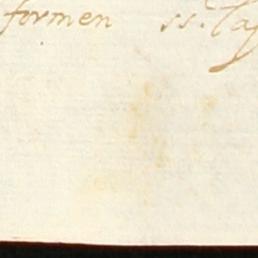 formen ss. Cap